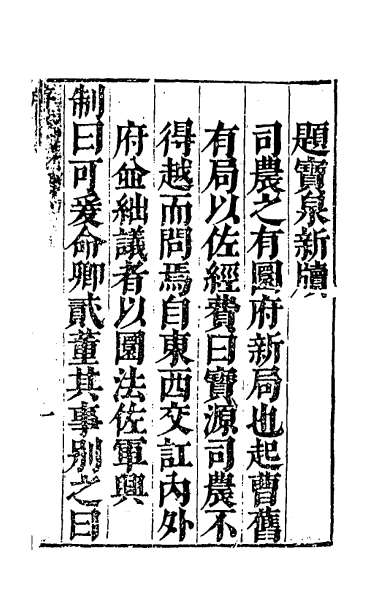 題寶泉新牘
司農之有圜府新局也起曹舊
有局以佐經費曰寶源司農不
得越而問焉自東西交訌内外
府並絀議者以圜法佐軍興
制曰可爰命卿貳董其事别之曰
序
一